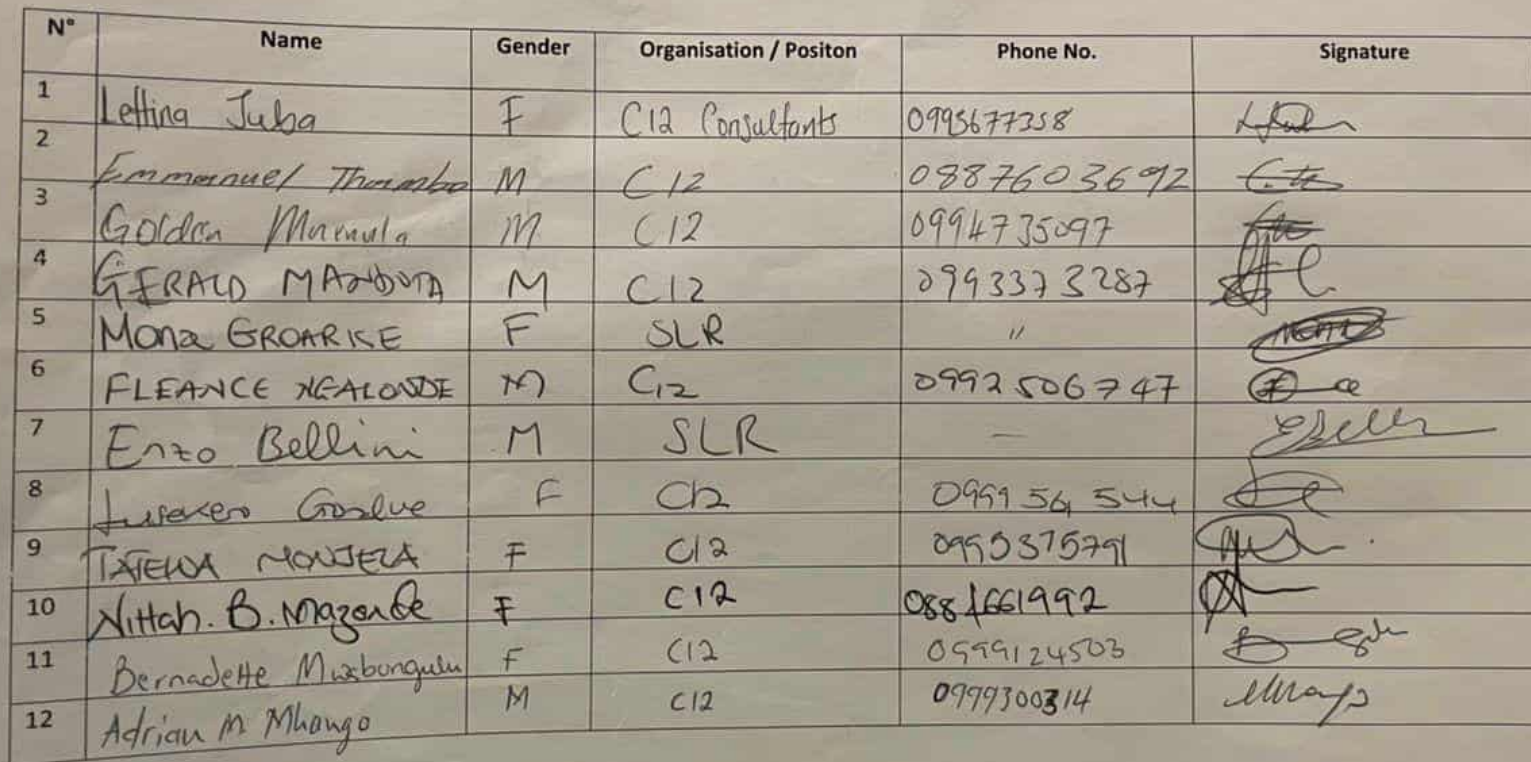 N° Name Gender Organisation / Positon Phone No. Signature
1 Letting Juba F C12 Consultants 0995677358
2 Emmanuel Thombo M C12 0887603692
3 Golden M F M C12 0994735097
4 GERALD M C12 0993373287
5 Mona GROARKE F SLR "
6 FLEANCE NGALONDE M C12 0992506747
7 Enzo Bellini M SLR —
8 F C12 0999 561 544
9 F C12 0995375791
10 Nittah. B. Mazonde F C12 0881661992
11 Bernadette F C12 0999124503
12 Adrian M Mhango M C12 0999300314